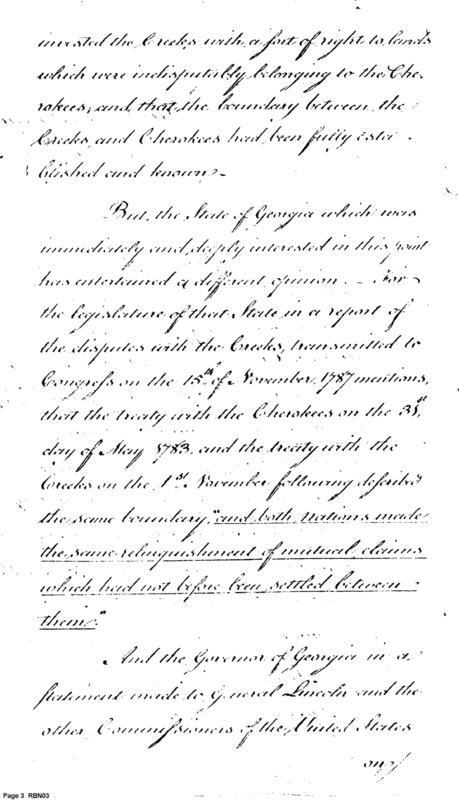 invested the Creeks with a sort of right to lands
which were indisputably belonging to the Che-
rokees, and that the boundary between the
Creeks and Cherokees had been fully esta-
blished and known-
But, the State of Georgia which was
immediately and deeply interested in this point
has entertained a different opinion. - For
the legislature of that State, in a report of
the disputes with the Creeks, transmitted to
Congress on the 15th of November, 1787 mentions,
that the treaty with the Cherokees on the 31st
day of May 1783, and the treaty with the
Creeks on the 1st November following described
the same boundary, "and both nations made
the same relinquishment of mutual claims
which had not before been settled between
them."
And the Governor of Georgia in a
statement made to General Lincoln and the
other Commissioners of the United States
on
Page 3 RBN03